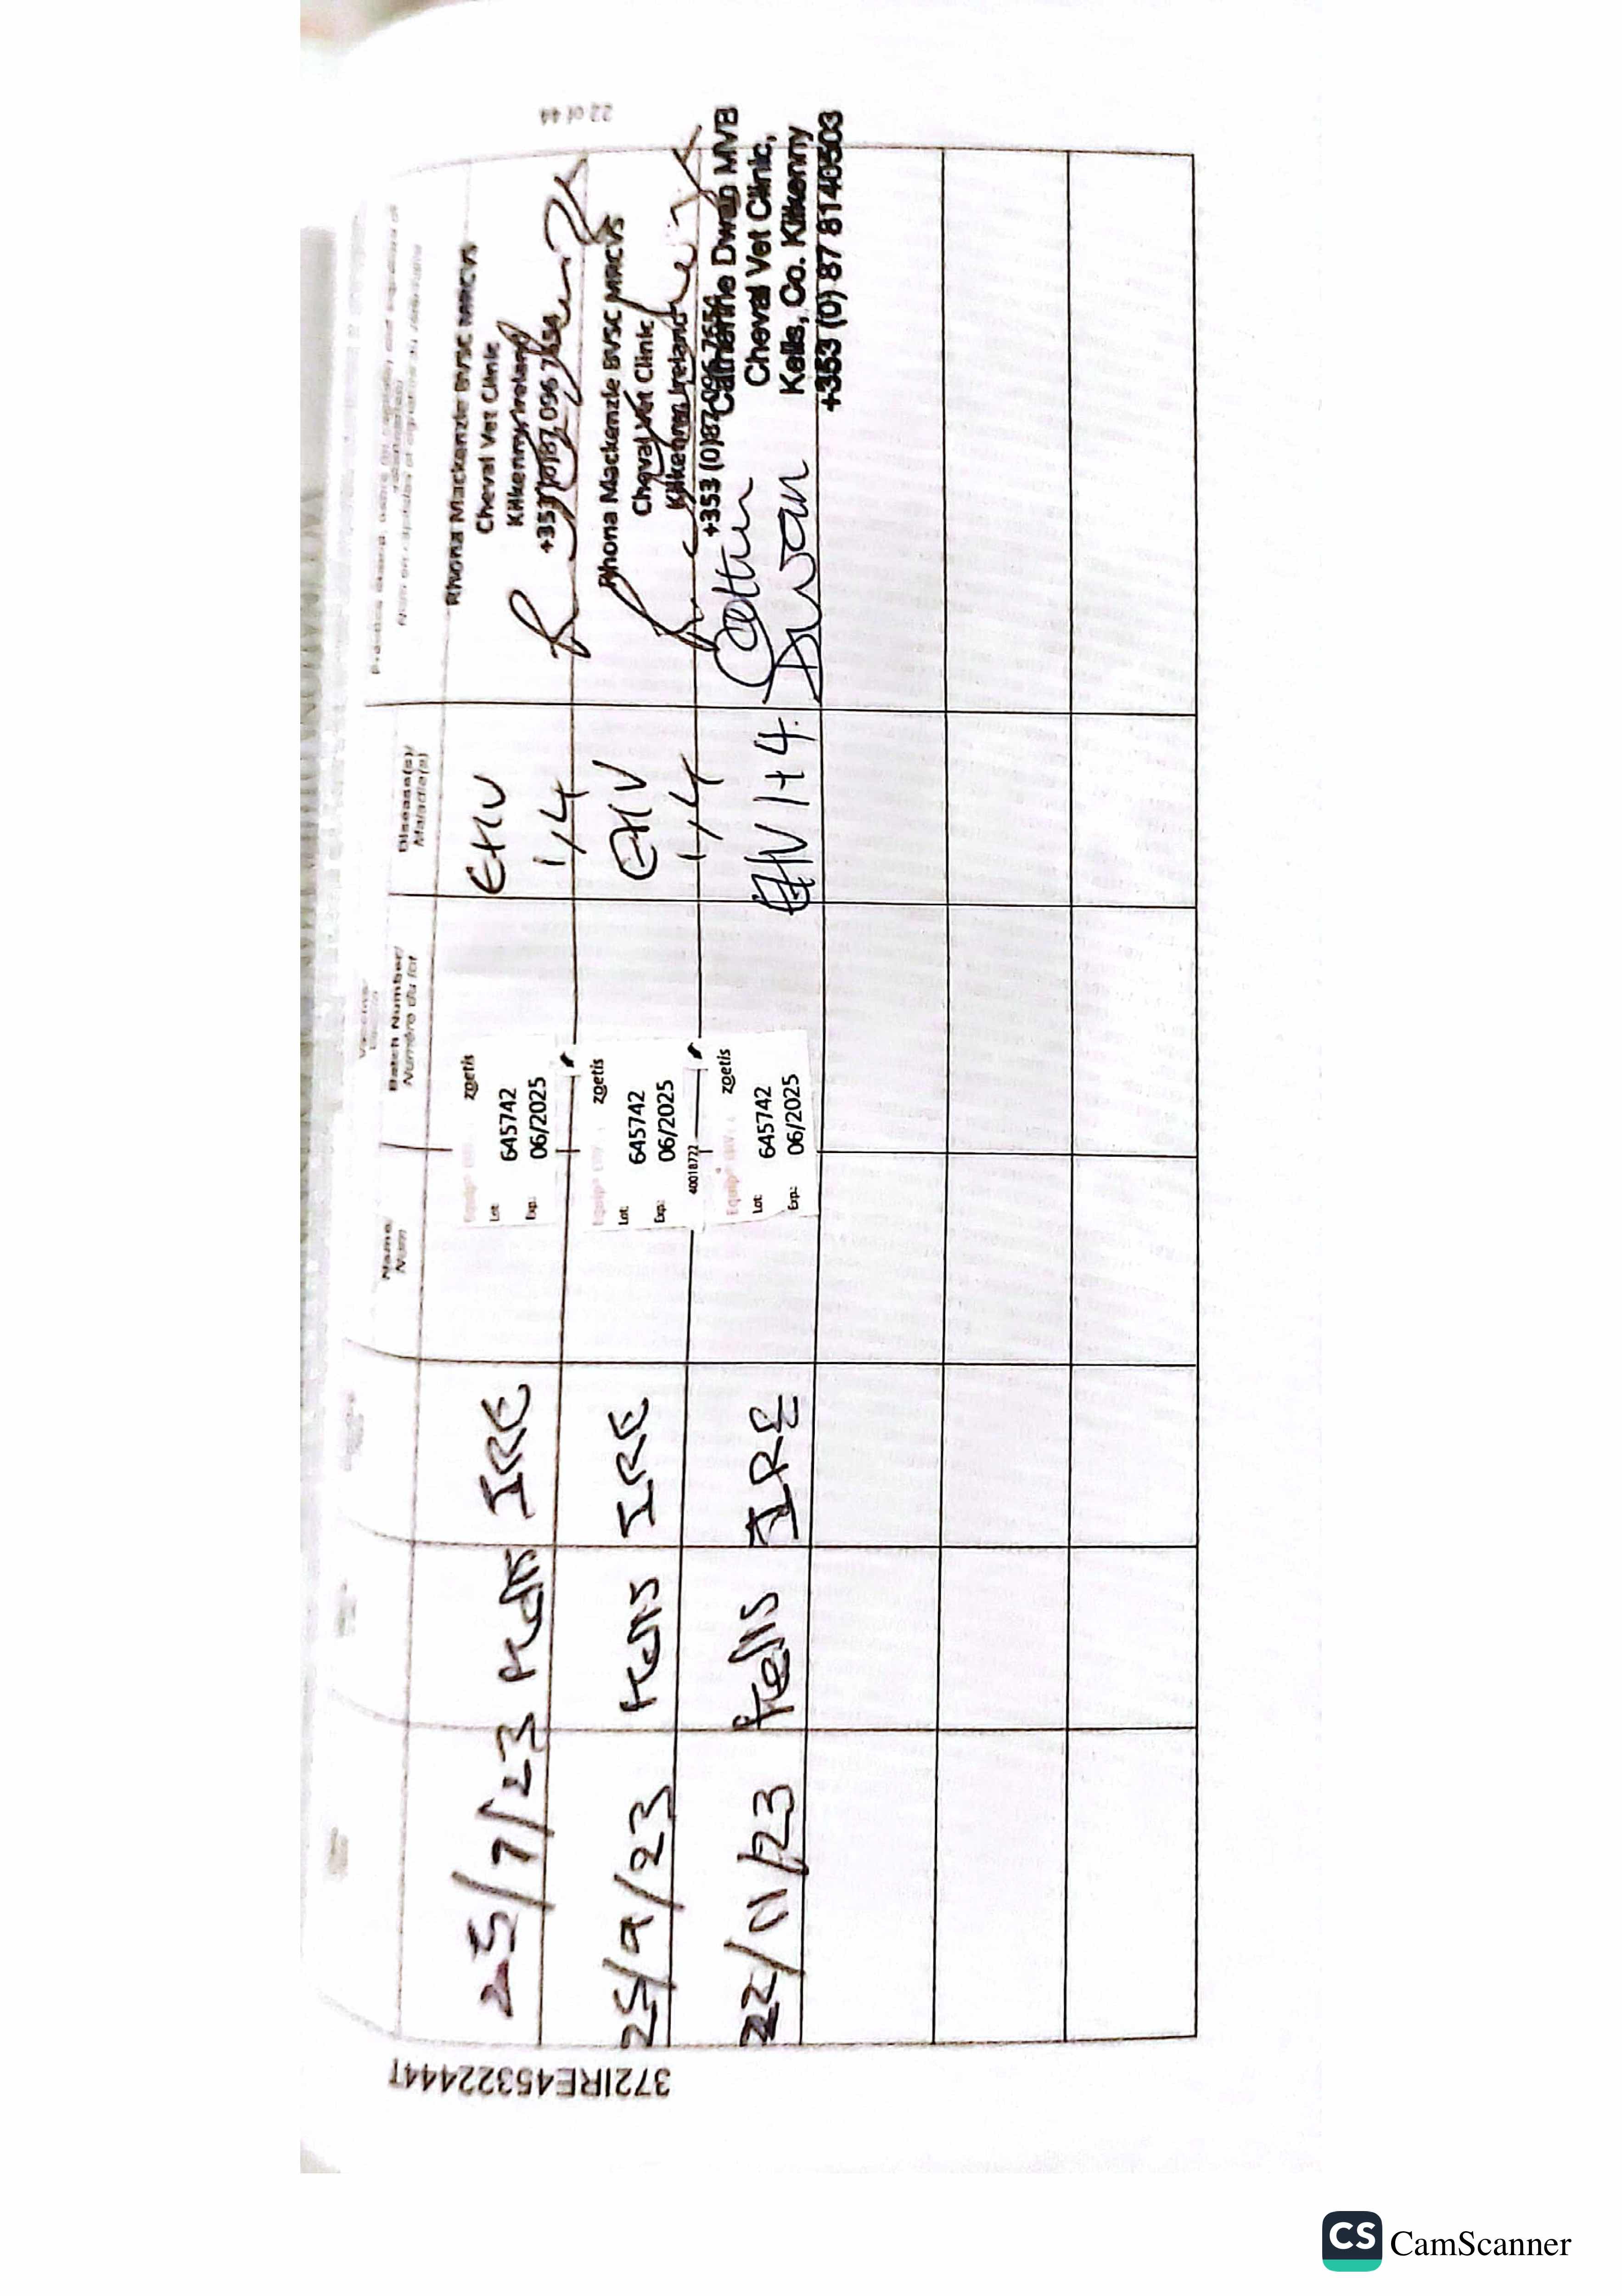 22 of 44
Name
Nom
Batch Number/
Numéro du lot
Disease(s)/
Maladie(s)
25/7/23 Kells IRE
zoetis
Lot: 645742
Exp.: 06/2025
EHV
1,4
Rhona Mackenzie BVSC MRCVS
Cheval Vet Clinic
Kilkenny Ireland
25/9/23 Kells IRE
zoetis
Lot: 645742
Exp.: 06/2025
40018722
EHV
1,4
Rhona Mackenzie BVSC MRCVS
Cheval Vet Clinic
Kilkenny Ireland
22/11/23 Kells IRE
Equip® EHV 1,4 zoetis
Lot: 645742
Exp.: 06/2025
EHV 1+4.
Dwan
Catherine Dwan MVB
Cheval Vet Clinic,
Kells, Co. Kilkenny
+353 (0) 87 8140503
372IRE45322444T
CS CamScanner